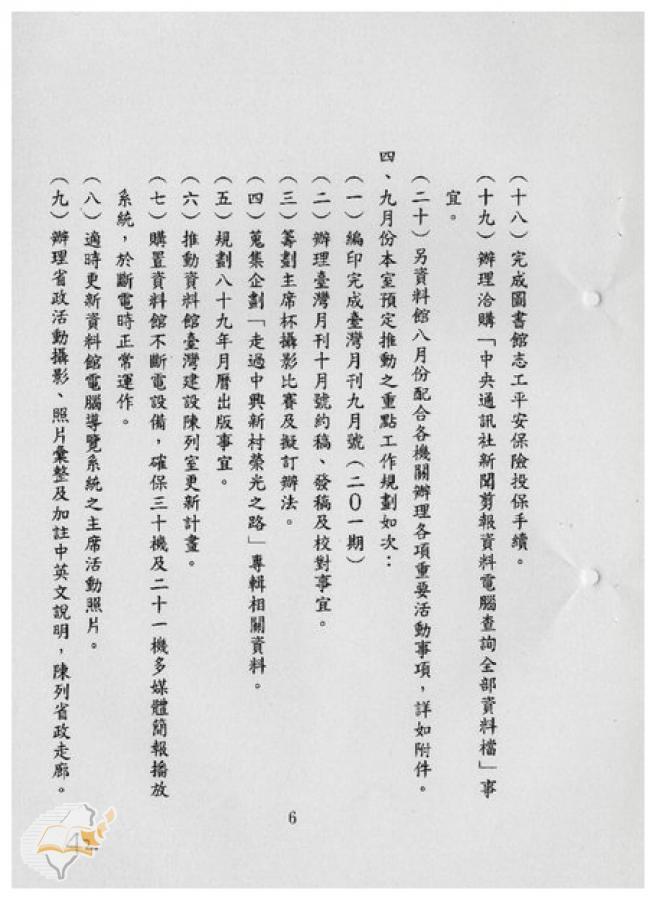 (十八)完成圖書館志工平安保險投保手續。
(十九)辦理洽購「中央通訊社新聞剪報資料電腦查詢全部資料檔」事
宜。
(二十)另資料館八月份配合各機關辦理各項重要活動事項,詳如附件。
四、九月份本室預定推動之重點工作規劃如次:
(一)編印完成臺灣月刊九月號(二0一期)
(二)辦理臺灣月刊十月號約稿、發稿及校對事宜。
(三)籌劃主席杯攝影比賽及擬訂辦法。
(四)蒐集企劃「走過中興新村榮光之路」專輯相關資料。
(五)規劃八十九年月曆出版事宜。
(六)推動資料館臺灣建設陳列室更新計畫。
(七)購置資料館不斷電設備,確保三十機及二十一機多媒體簡報播放
系統,於斷電時正常運作。
(八)適時更新資料館電腦導覽系統之主席活動照片。
(九)辦理省政活動攝影、照片彙整及加註中英文說明,陳列省政走廊。
6